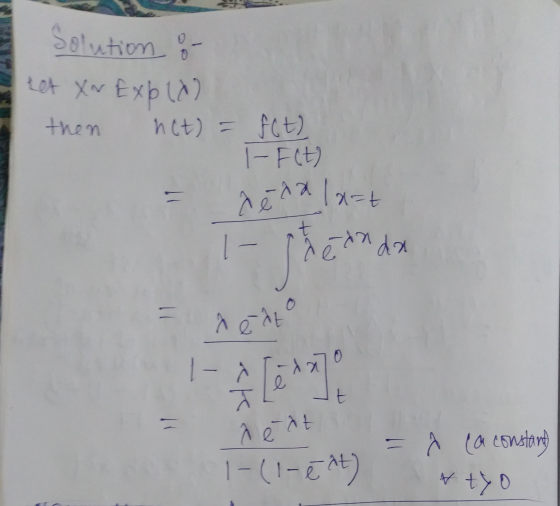 Solution :-
Let X ~ Exp(λ)
then h(t) = f(t) / 1 - F(t)
= λe^-λx | x=t / 1 - ∫_0^t λe^-λx dx
= λe^-λt / 1 - λ/λ [e^-λx]_t^0
= λe^-λt / 1-(1-e^-λt) = λ (a constant)
∀ t>0